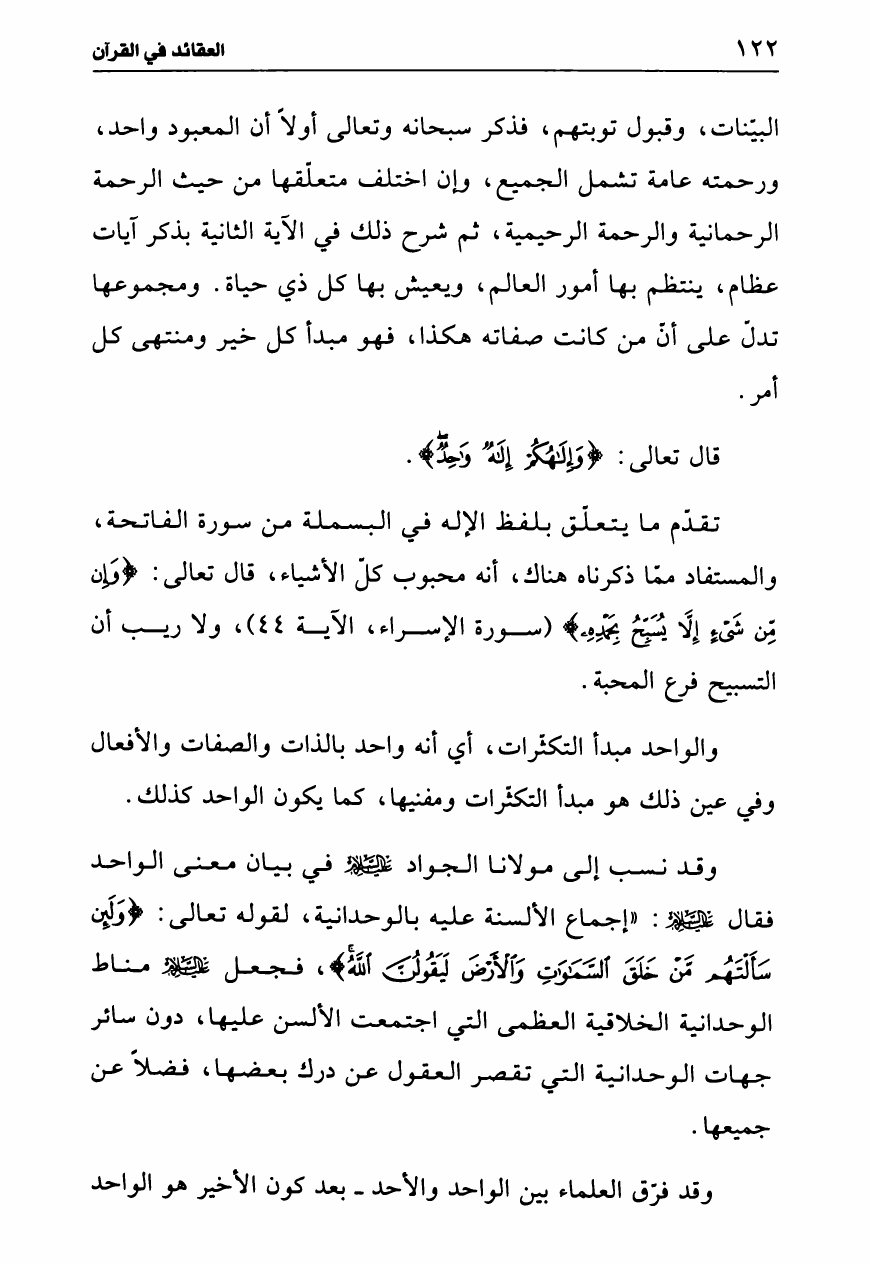 ١٢٢ العقائد في القرآن
البيّنات، وقبول توبتهم، فذكر سبحانه وتعالى أولاً أن المعبود واحد،
ورحمته عامة تشمل الجميع، وإن اختلف متعلّقها من حيث الرحمة
الرحمانية والرحمة الرحيمية، ثم شرح ذلك في الآية الثانية بذكر آيات
عظام، ينتظم بها أمور العالم، ويعيش بها كل ذي حياة. ومجموعها
تدلّ على أنّ من كانت صفاته هكذا، فهو مبدأ كل خير ومنتهى كل
أمر.
قال تعالى: ﴿وَإِلَٰهُكُمْ إِلَٰهٌ وَٰحِدٌۖ﴾.
تقدّم ما يتعلّق بلفظ الإله في البسملة من سورة الفاتحة،
والمستفاد ممّا ذكرناه هناك، أنه محبوب كلّ الأشياء، قال تعالى: ﴿وَإِن
مِّن شَىْءٍ إِلَّا يُسَبِّحُ بِحَمْدِهِۦ﴾ (سورة الإسراء، الآية ٤٤)، ولا ريب أن
التسبيح فرع المحبة.
والواحد مبدأ التكثّرات، أي أنه واحد بالذات والصفات والأفعال
وفي عين ذلك هو مبدأ التكثّرات ومفنيها، كما يكون الواحد كذلك.
وقد نسب إلى مولانا الجواد عليه السلام في بيان معنى الواحد
فقال عليه السلام: «إجماع الألسنة عليه بالوحدانية، لقوله تعالى: ﴿وَلَئِن
سَأَلْتَهُم مَّنْ خَلَقَ ٱلسَّمَٰوَٰتِ وَٱلْأَرْضَ لَيَقُولُنَّ ٱللَّهُۚ﴾، فجعل عليه السلام مناط
الوحدانية الخلاقية العظمى التي اجتمعت الألسن عليها، دون سائر
جهات الوحدانية التي تقصر العقول عن درك بعضها، فضلاً عن
جميعها.
وقد فرّق العلماء بين الواحد والأحد ـ بعد كون الأخير هو الواحد